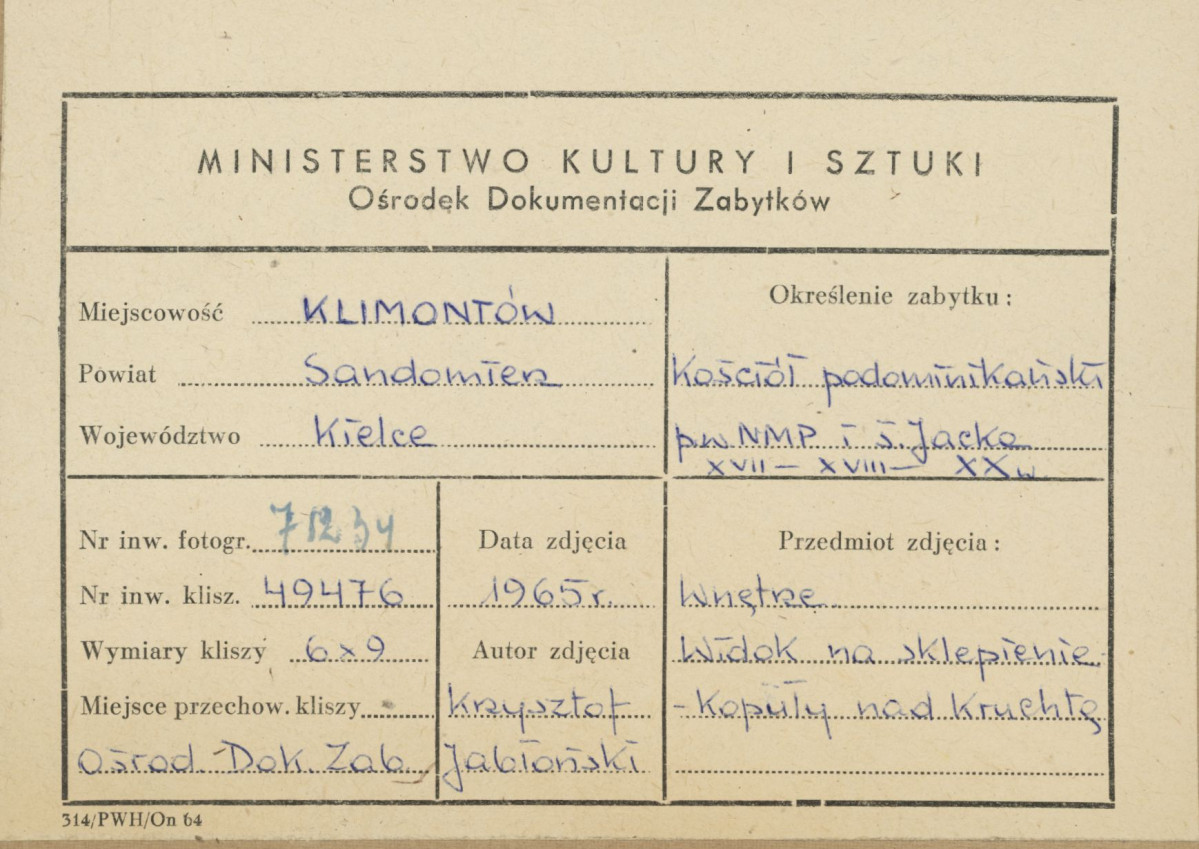 MINISTERSTWO KULTURY I SZTUKI
Ośrodek Dokumentacji Zabytków
Miejscowość KLIMONTÓW
Powiat Sandomierz
Województwo Kielce
Określenie zabytku:
Kościół podominikański
pw NMP i ś. Jacka
XVII – XVIII – XX w
Nr inw. fotogr. 71234
Nr inw. klisz. 49476
Wymiary kliszy 6x9
Miejsce przechow. kliszy
Ośrod. Dok. Zab.
Data zdjęcia
1965 r.
Autor zdjęcia
Krzysztof
Jabłoński
Przedmiot zdjęcia:
Wnętrze
Widok na sklepienie
- Kopuły nad Kruchtą
314/PWH/On 64